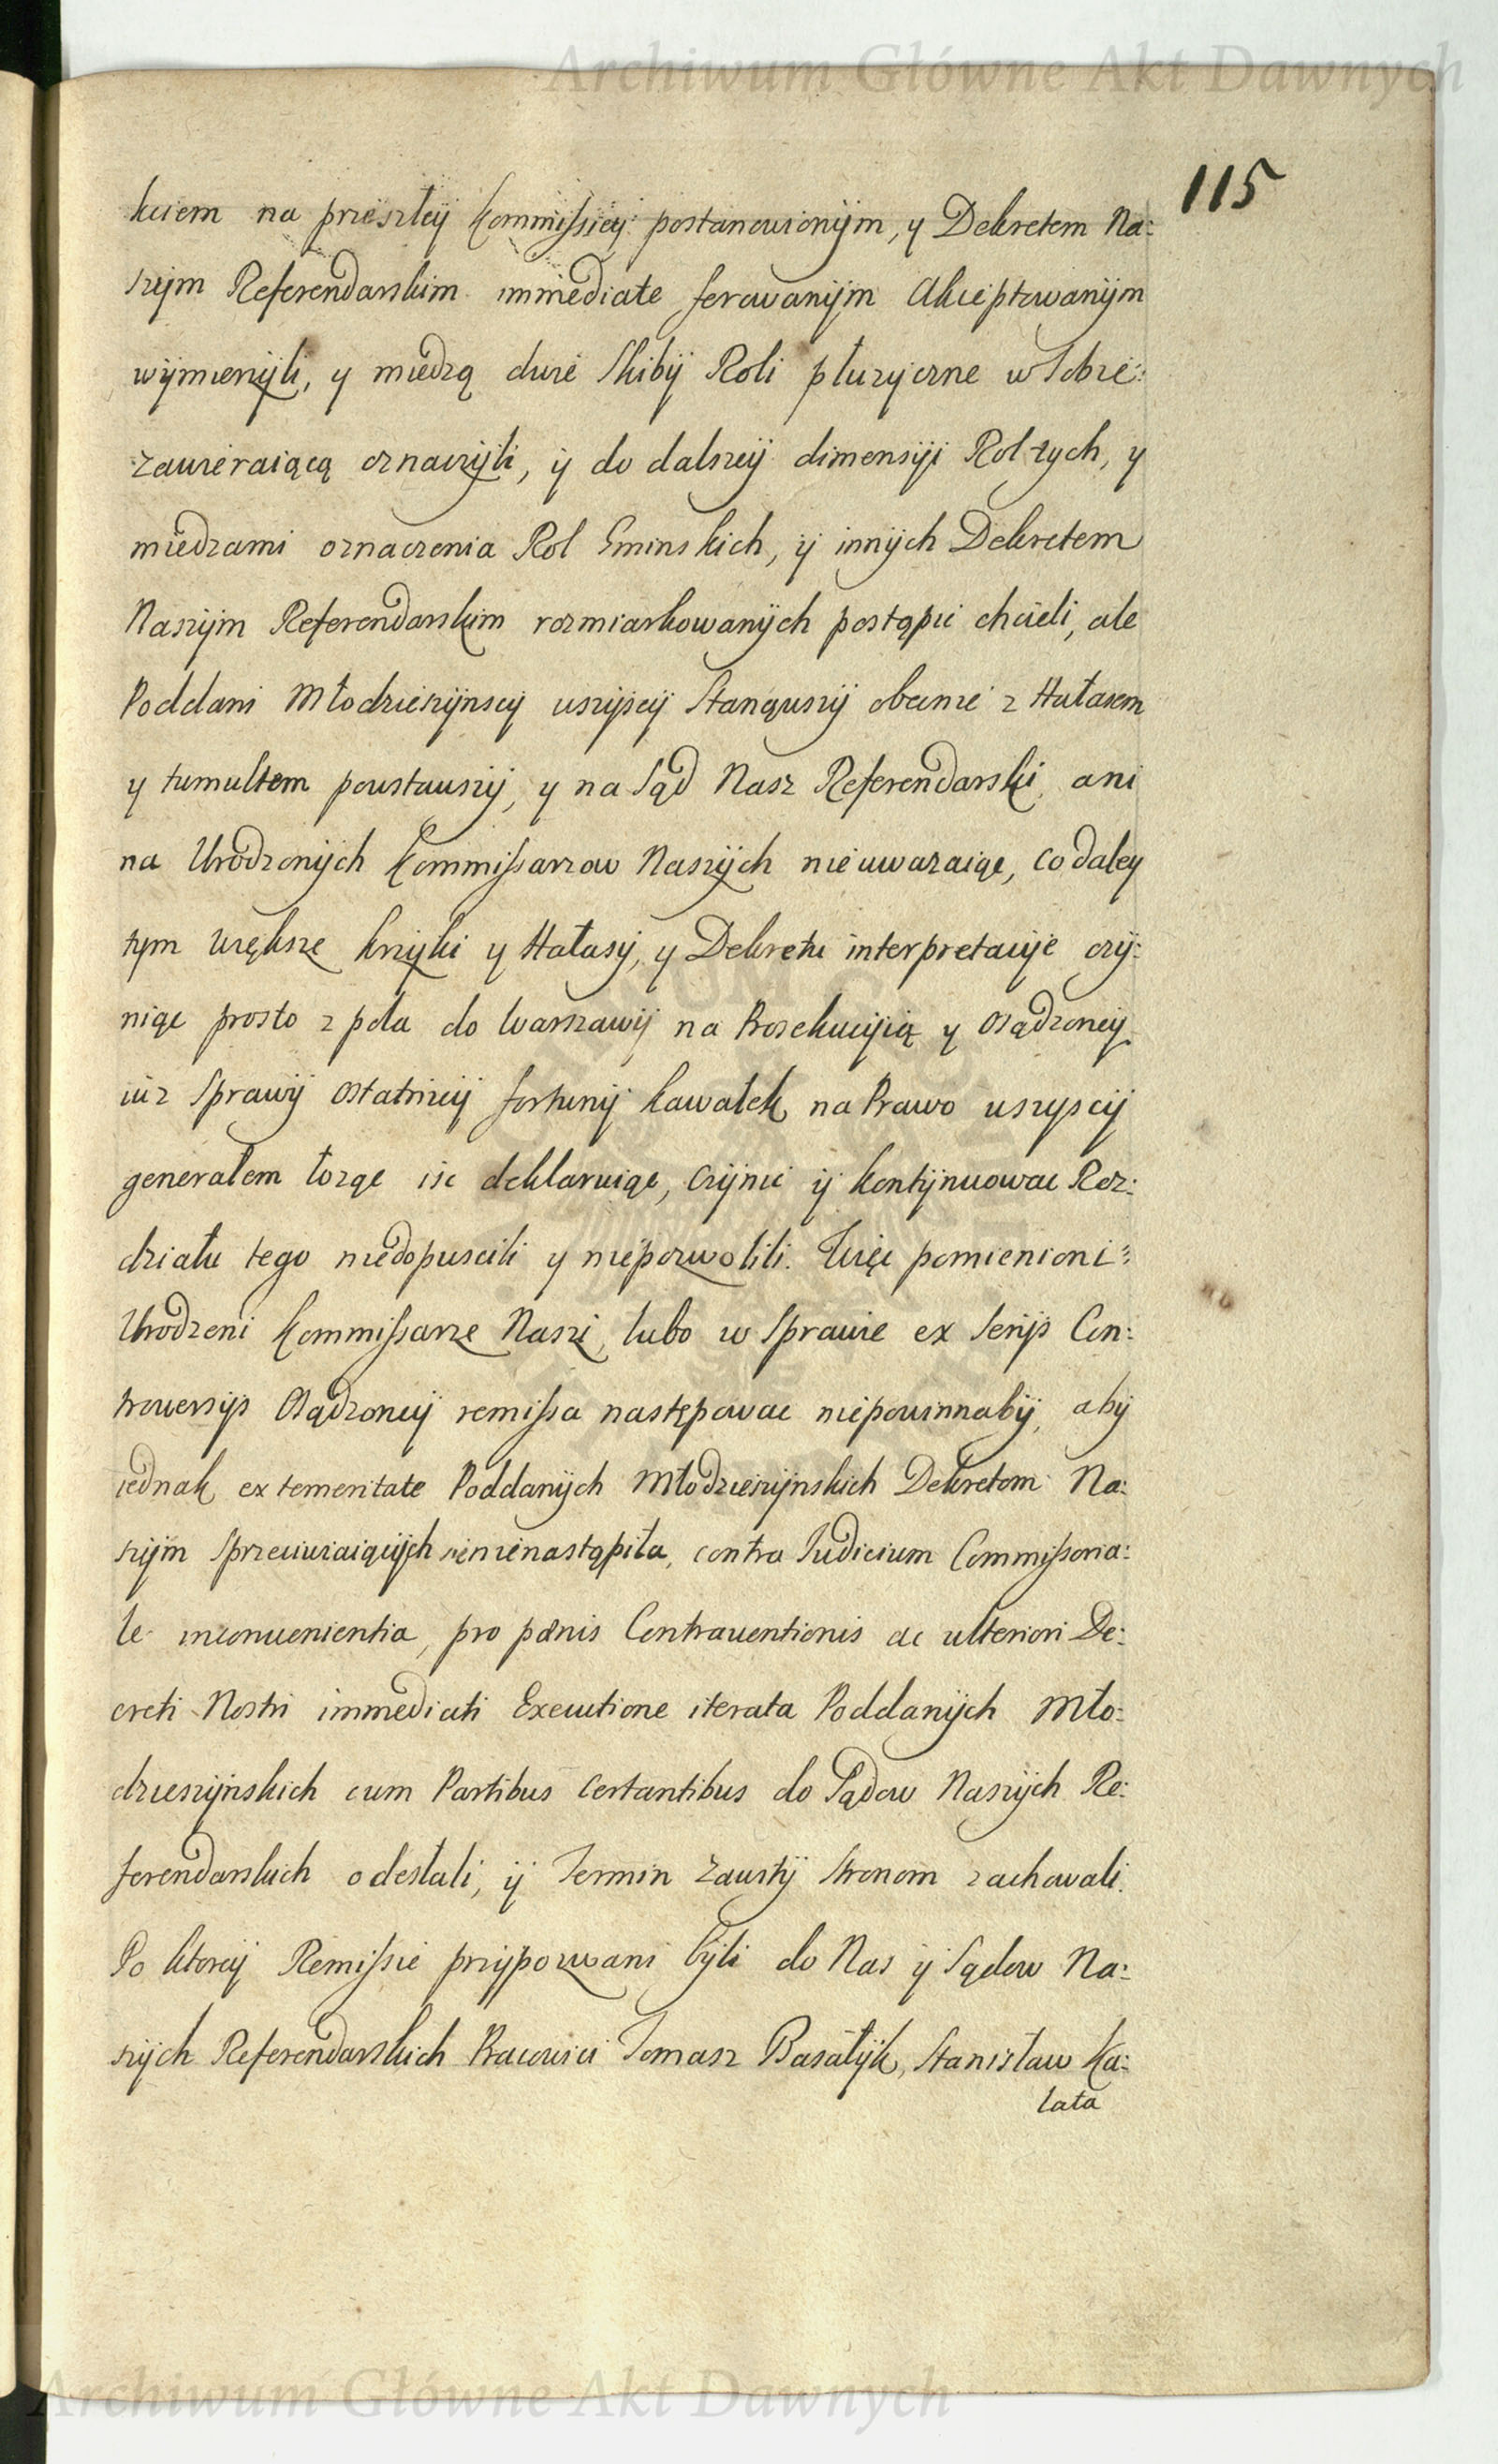 Archiwum Główne Akt Dawnych
115
kciem na przeszłeÿ Kommissÿeÿ postanowionÿm, y Dekretem Na:
szÿm Referendarskim immediate ferowanÿm Akceptowanÿm
wÿmienÿli, y miedzą dwie Skibÿ Roli płuzyczne w Sobie:
zawieraiącą oznaczÿli, ÿ do dalszeÿ dimensÿi Rol tych, y
miedzami oznaczenia Rol Gminskich, ÿ innÿch Dekretem
Naszÿm Referendarskim rozmiarkowanÿch postąpic chcieli, ale
Poddani Młodzieszÿnscÿ wszÿscÿ Stanąwszÿ obecnie z Hałasem
y tumultem powstawszÿ, y na Sąd Nasz Referendarski ani
na Urodzonÿch Kommissarzow Naszÿch nieuwazaiąc, co daley
tym większe krzÿki y Hałasÿ, y Dekretu interpretacÿe czÿ:
niąc prosto z pola do Warszawÿ na Prosekucÿią y Osądzoneÿ
iuz Sprawÿ ostatnieÿ fortunÿ kawałek na Prawo wszyscÿ
generałem łoząc isc deklaruiąc, czÿnic ÿ kontÿnuowac Roz:
działu tego niedopuscili y niepozwolili. Więc pomienioni:
Urodzeni Kommissarze Nasi, lubo w Sprawie ex Serÿs Con:
trowersÿs Osądzoneÿ remissa następowac niepowinnabÿ, abÿ
iednak ex temeritate Poddanÿch Młodzieszÿnskich Dekretom Na:
szÿm Sprzeciwiaiącÿch się nienastąpiła, contra Iudicium Commissoria:
le inconuenientia, pro pœnis Contrauentionis ac ulteriori De:
creti Nostri immediati Executione iterata Poddanÿch Mło:
dzieszÿnskich cum Partibus Certantibus do Sądow Naszÿch Re:
ferendarskich odesłali, ÿ Termin Zawitÿ Stronom zachowali.
Po ktoreÿ Remissie przÿpozwani bÿli do Nas ÿ Sądow Na:
szÿch Referendarskich Pracowici Tomasz Basałÿk, Stanisław Ka:
lata
Archiwum Główne Akt Dawnych